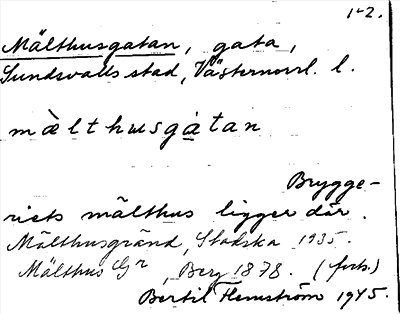 1-2.
Mälthusgatan, gata,
Sundsvalls stad, Västernorrl. l.
mälthusgatan
Brygge-
riets mälthus ligger där.
Mälthusgränd, Stadska 1935.
Mälthus Gr, Berg 1878. (forts.)
Bertil Flemström 1945.